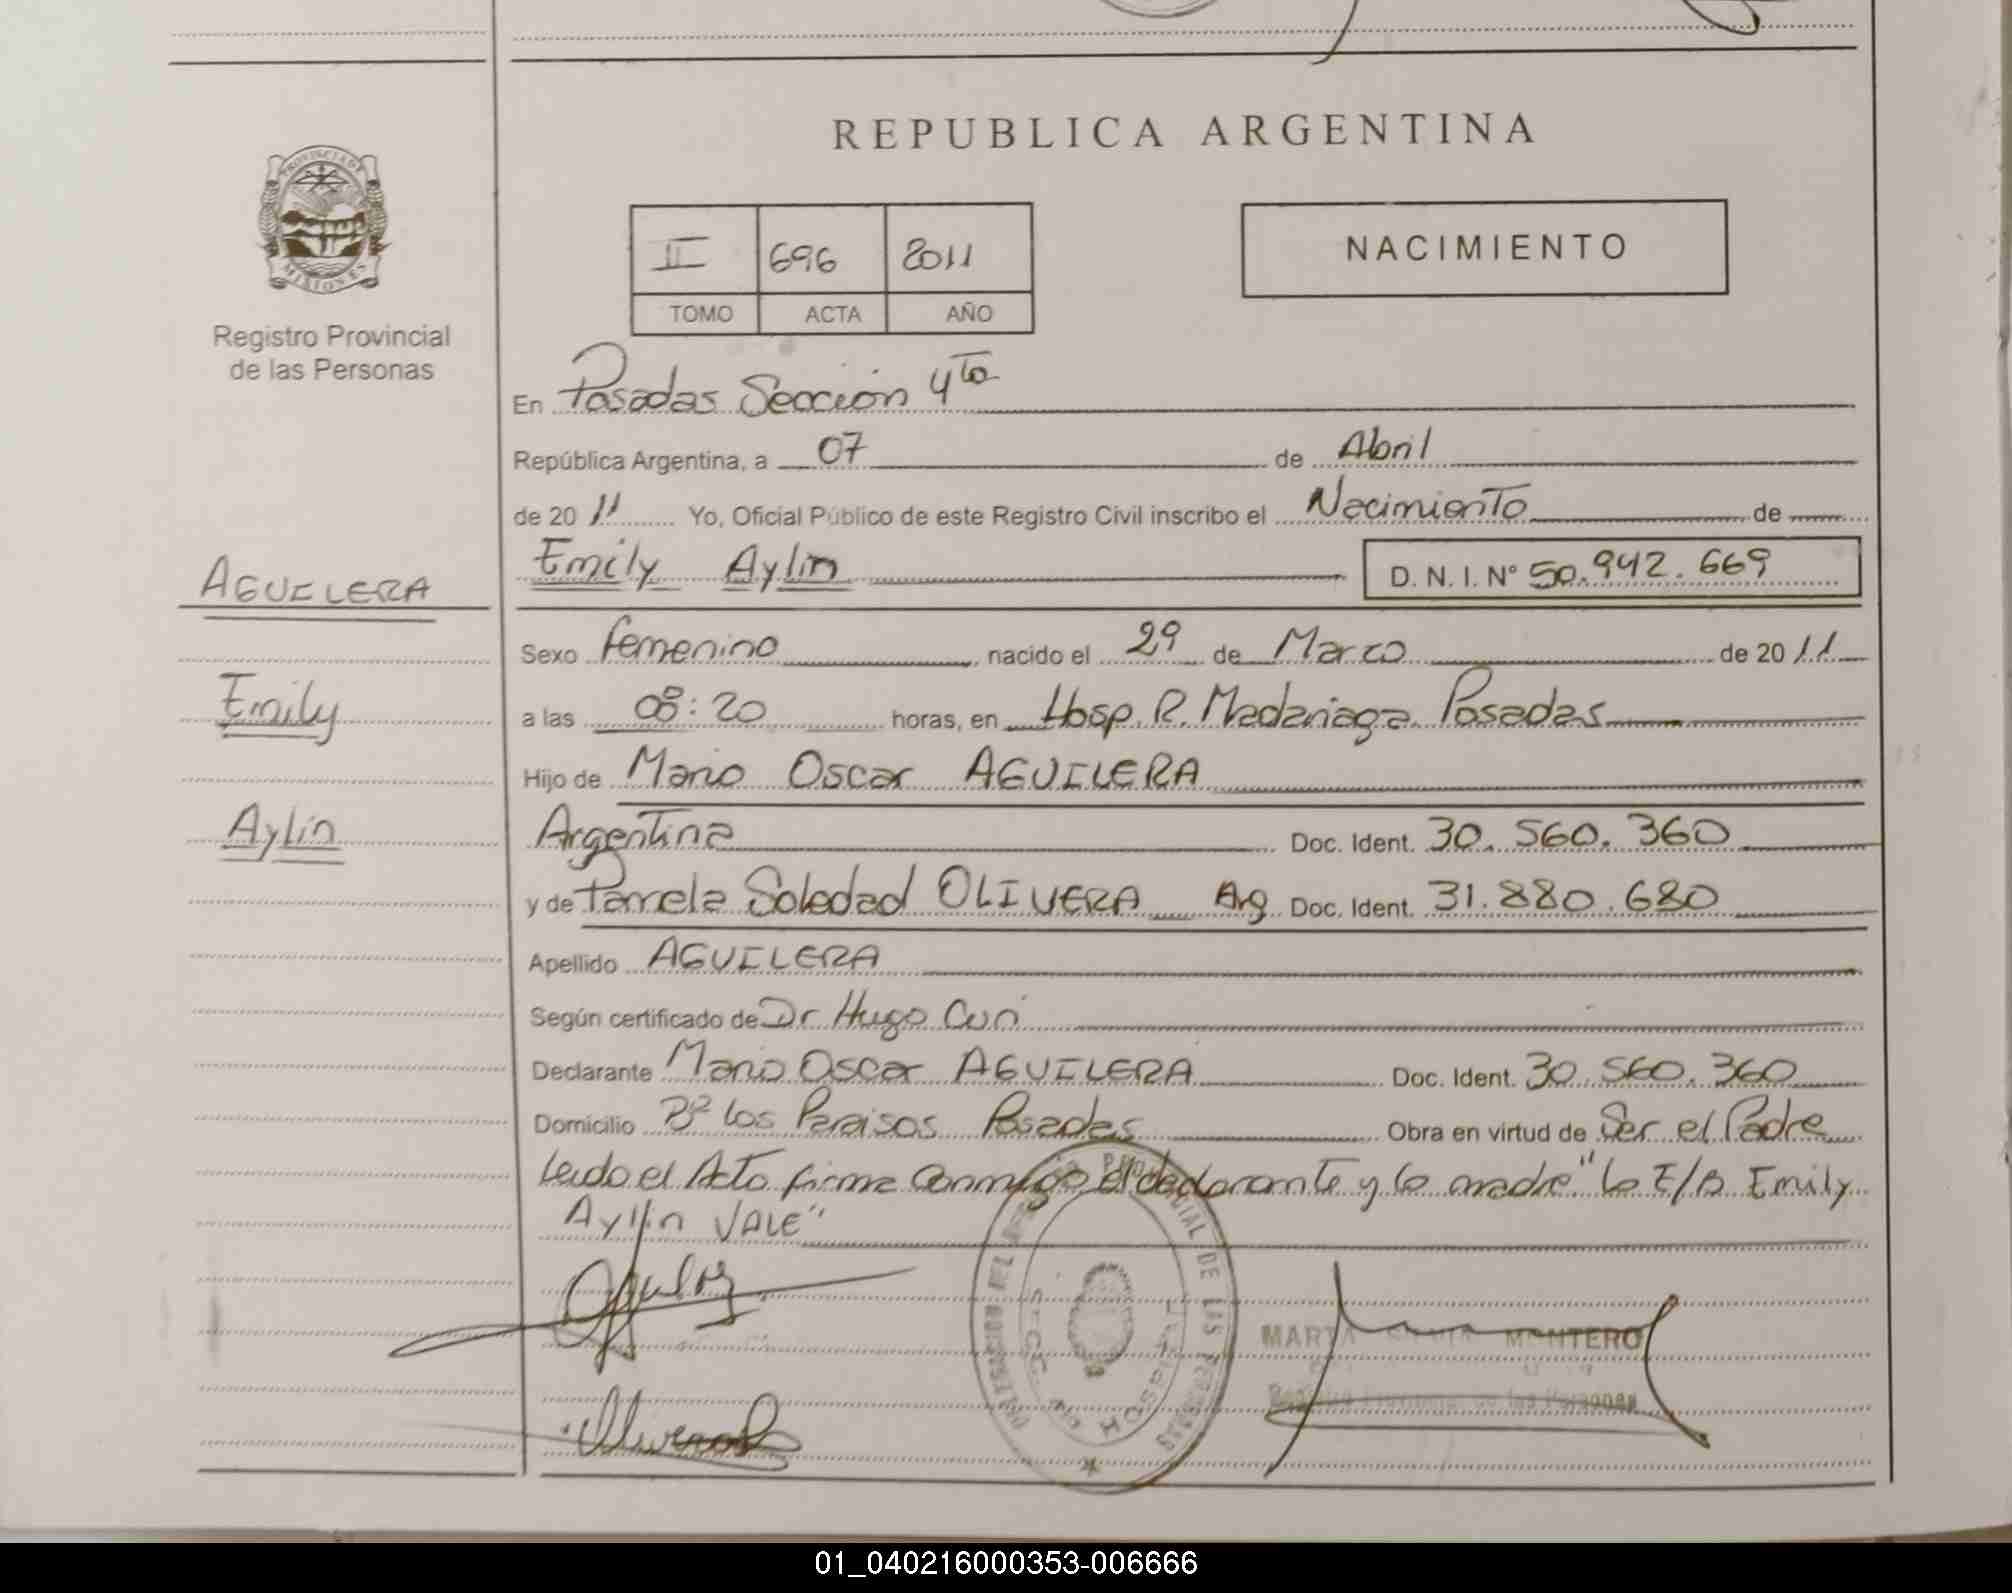 REPUBLICA ARGENTINA
PROVINCIA DE MISIONES
Registro Provincial
de las Personas
II 696 2011
TOMO ACTA AÑO
NACIMIENTO
En Posadas Sección 4ta
República Argentina, a 07 de Abril
de 2011 Yo, Oficial Público de este Registro Civil inscribo el Nacimiento de
Emily Aylin D. N. I. Nº 50.942.669
AGUILERA
Emily
Aylin
Sexo Femenino, nacido el 29 de Marzo de 2011
a las 08:20 horas, en Hosp. R. Madariaga Posadas
Hijo de Mario Oscar AGUILERA
Argentina Doc. Ident. 30.560.360
y de Pamela Soledad OLIVERA Arg Doc. Ident. 31.880.680
Apellido AGUILERA
Según certificado de Dr Hugo Curi
Declarante Mario Oscar AGUILERA Doc. Ident. 30.560.360
Domicilio Bº Los Paraisos Posadas Obra en virtud de Ser el Padre
Leido el Acto firma conmigo el declarante y la madre "lo E/A Emily
Aylin VALE"
MARTA MONTERO
Registro Provincial de las Personas
01_040216000353-006666